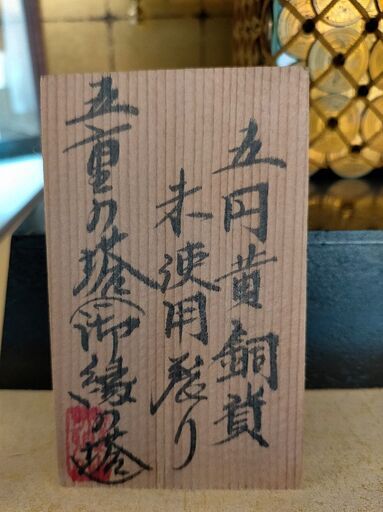 五円黄銅貨
未使用造り
五重の塔(御縁の塔)